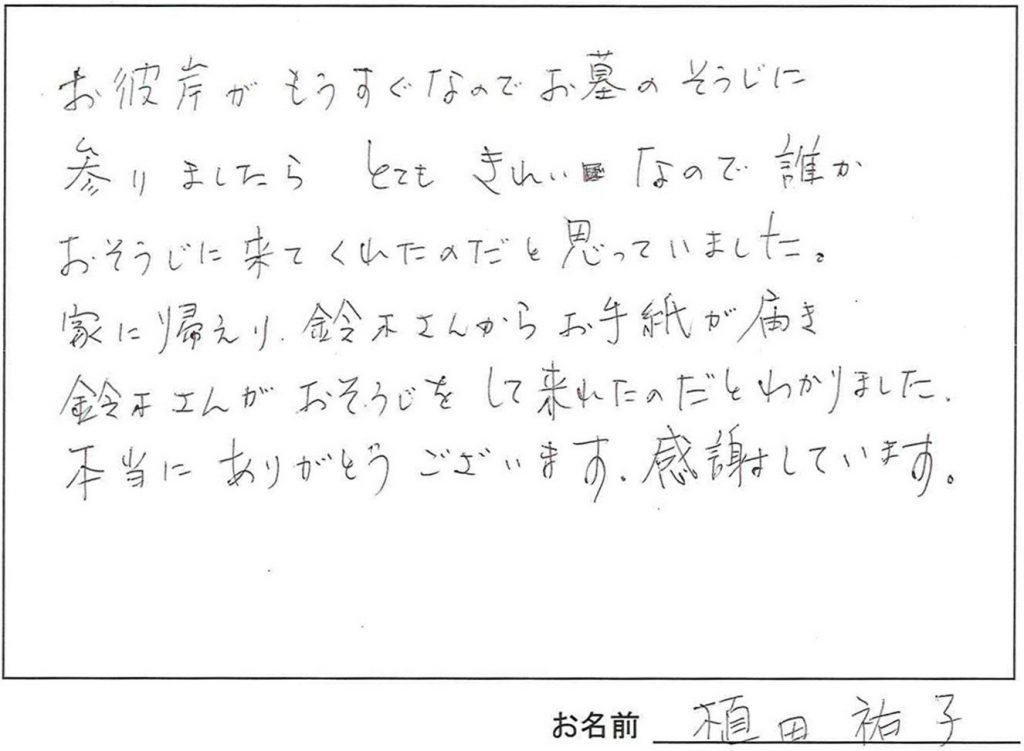 お彼岸がもうすぐなのでお墓のそうじに
参りましたら とても きれいなので誰か
おそうじに来てくれたのだと思っていました。
家に帰えり、鈴木さんからお手紙が届き
鈴木さんがおそうじをして来れたのだとわかりました、
本当にありがとうございます、感謝しています。
お名前 植田 祐子